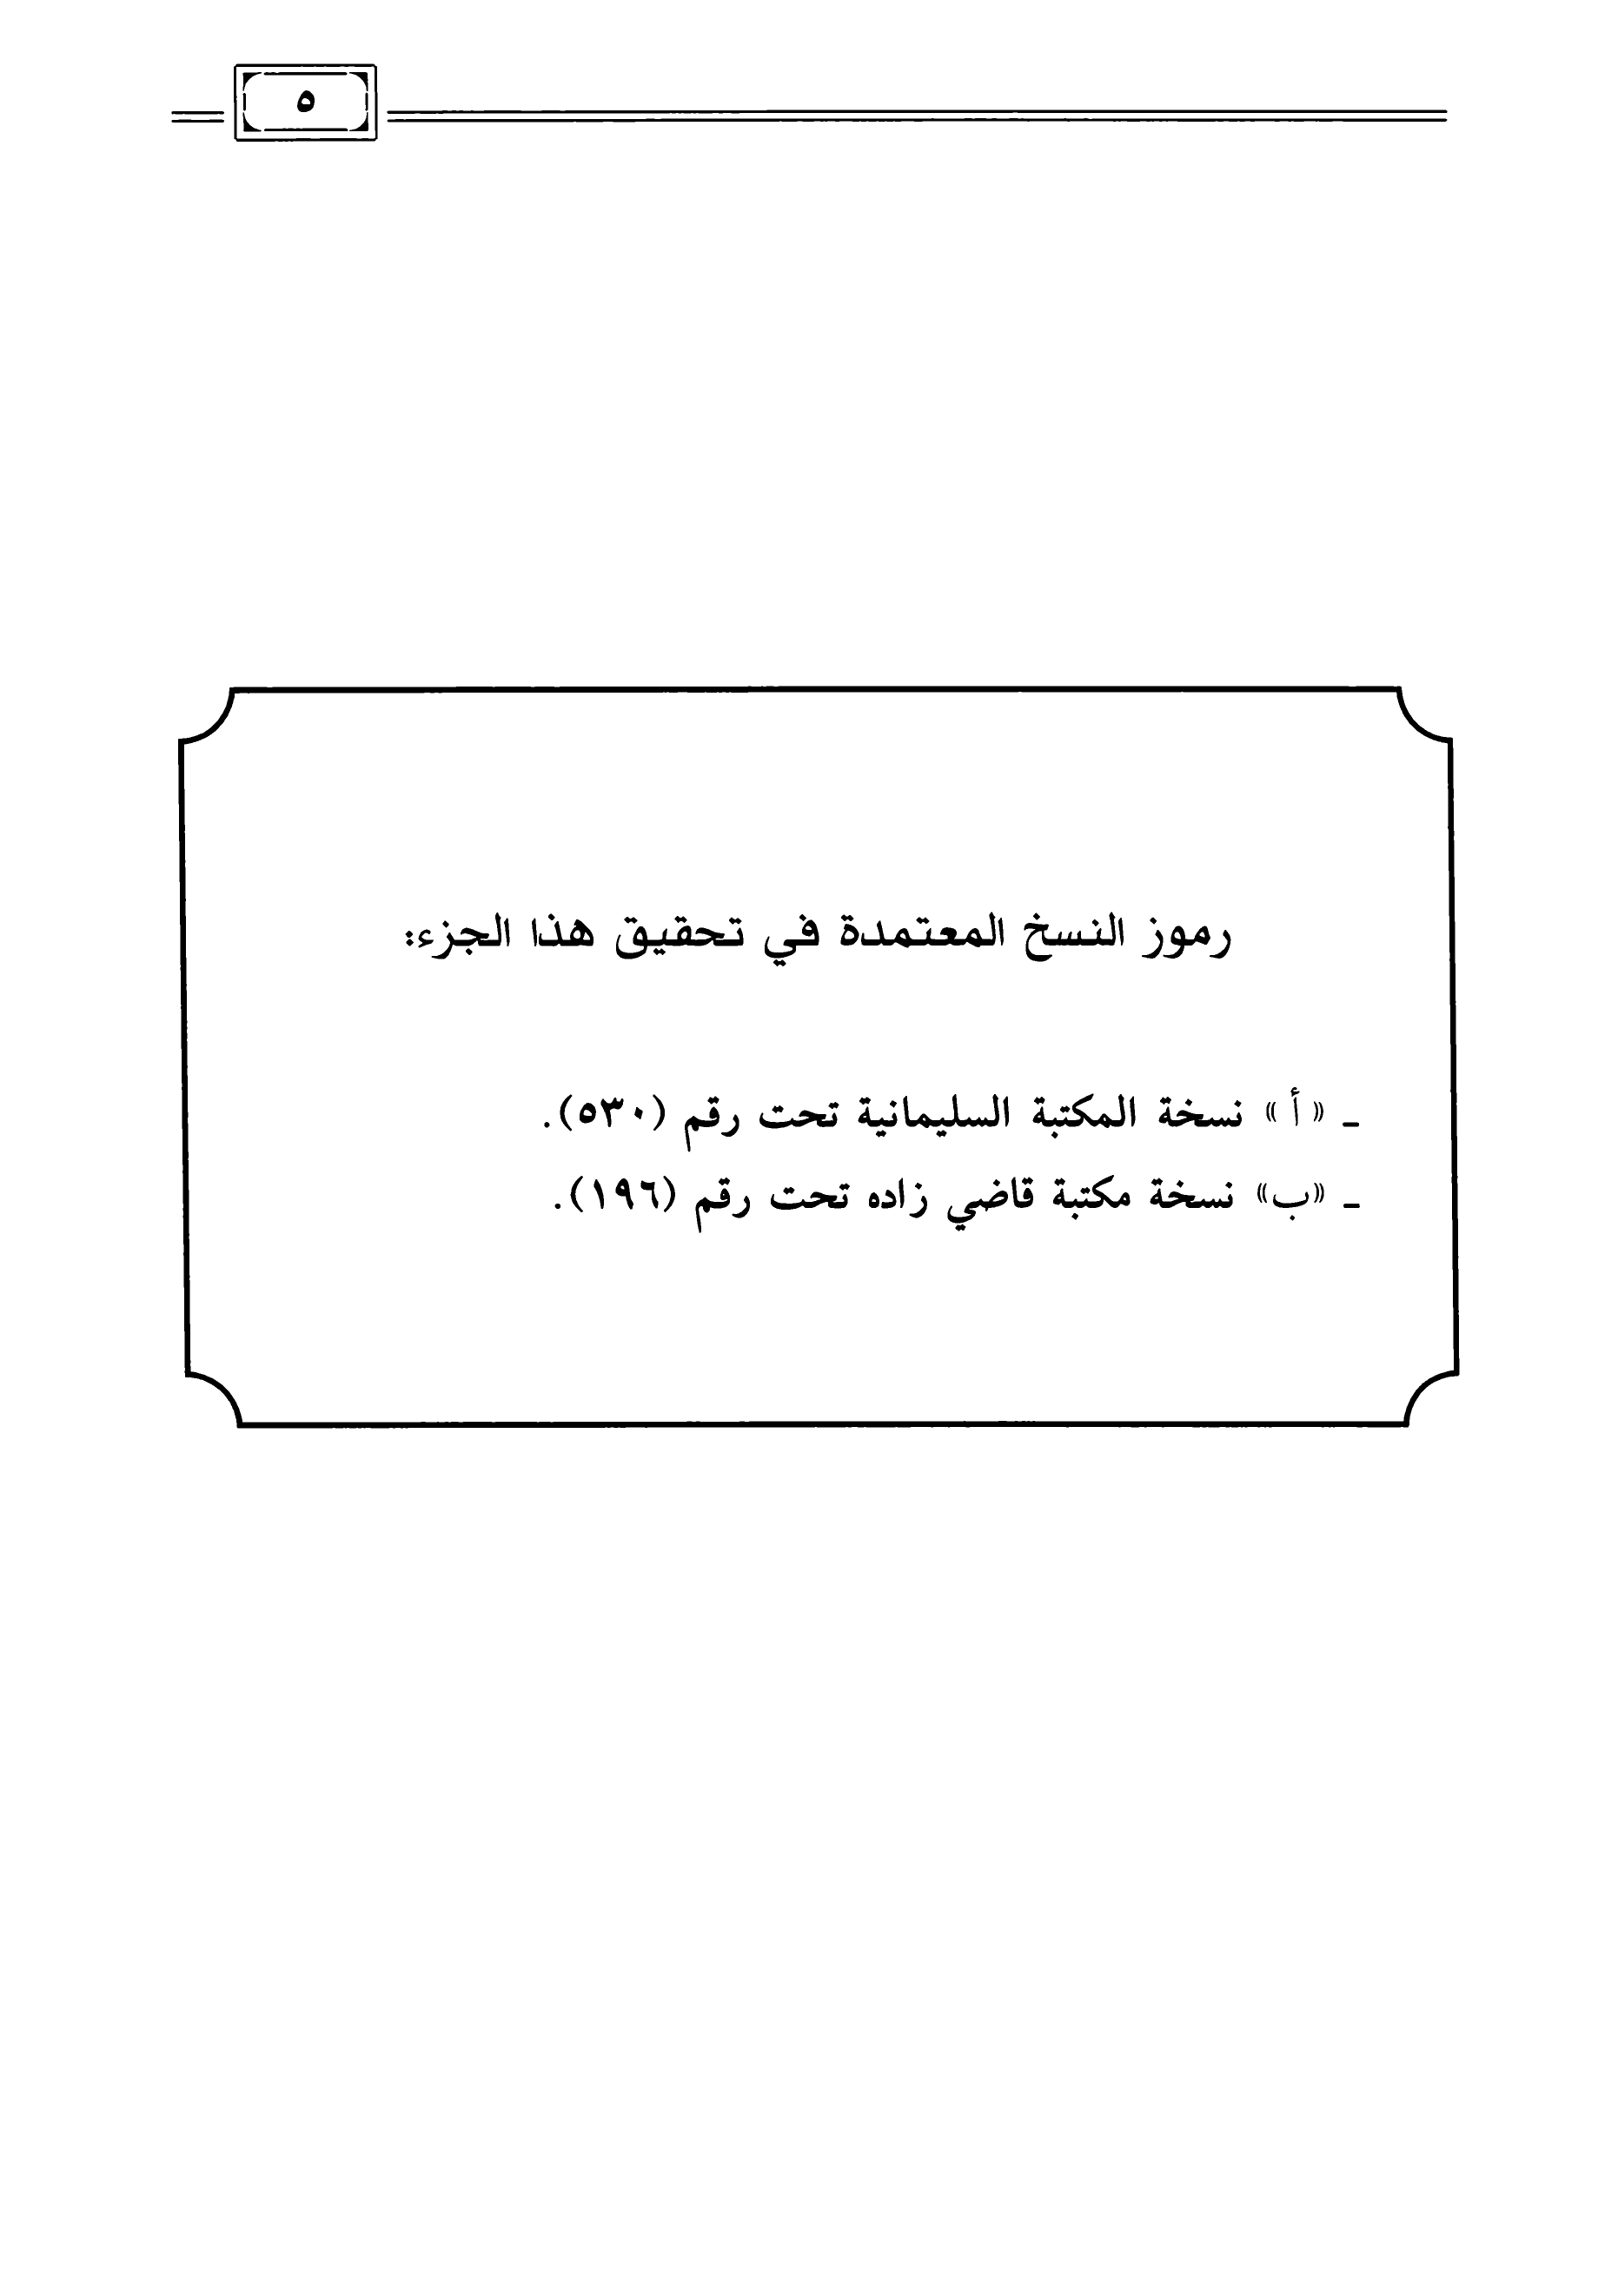 ٥
رموز النسخ المعتمدة في تحقيق هذا الجزء:
ـ «أ» نسخة المكتبة السليمانية تحت رقم (٥٣٠).
ـ «ب» نسخة مكتبة قاضي زاده تحت رقم (١٩٦).